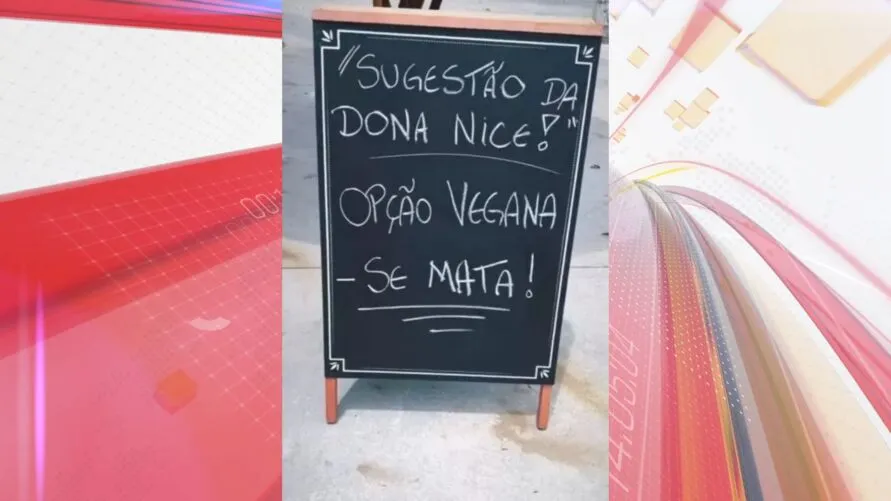 "SUGESTÃO DA
DONA NICE!"
OPÇÃO VEGANA
- SE MATA!